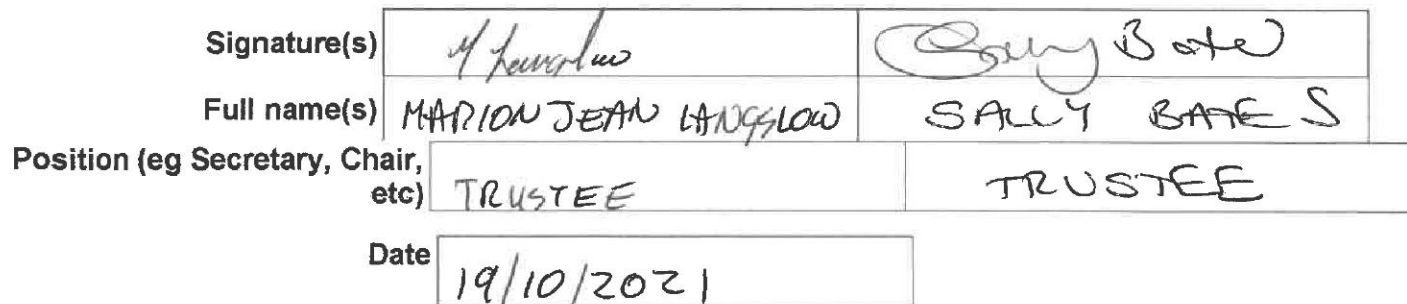 Signature(s) Sally Bates
Full name(s) MARION JEAN LANGSLOW SALLY BATES
Position (eg Secretary, Chair,
etc) TRUSTEE TRUSTEE
Date 19/10/2021